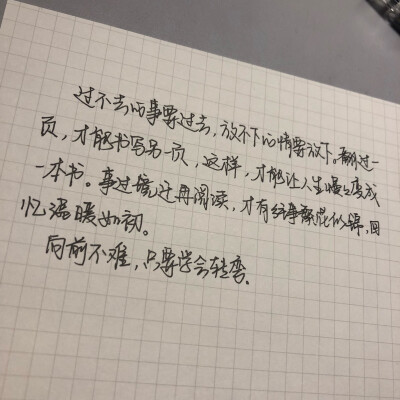 过不去的事要过去，放不下的情要放下。翻过一
页，才能书写另一页，这样，才能让人生慢慢变成
一本书。事过境迁再阅读，才有往事繁花似锦，回
忆温暖如初。
向前不难，只要学会转弯。